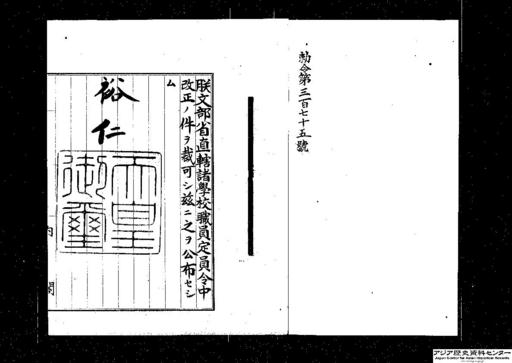 勅令第三百七十五號
朕文部省直轄諸學校職員定員令中
改正ノ件ヲ裁可シ玆ニ之ヲ公布セシ
ム
裕仁
天皇
御璽
内閣
アジア歴史資料センター
Japan Center for Asian Historical Records